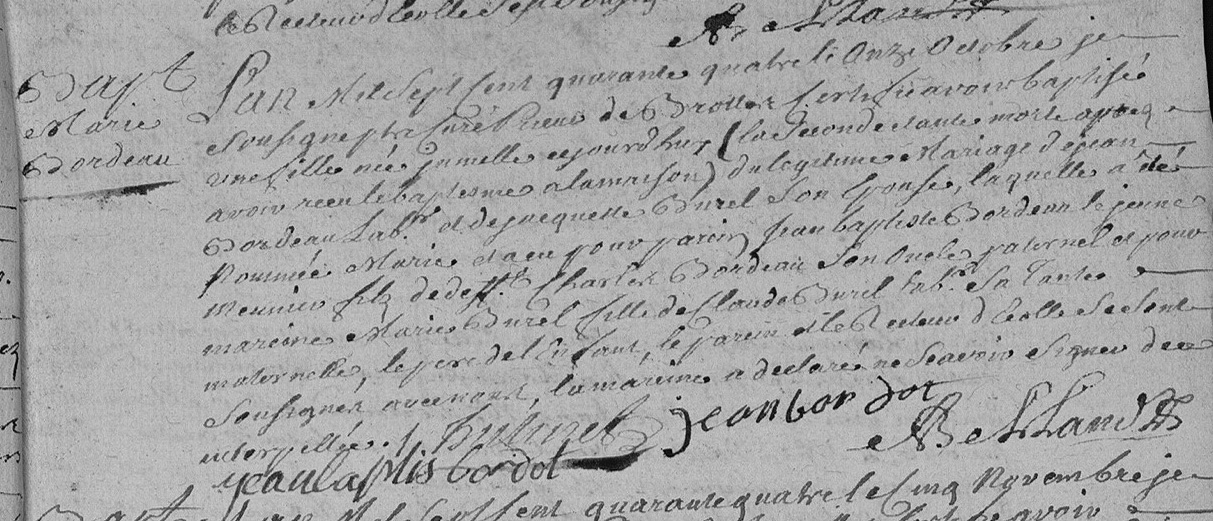 le Recteur d'Ecolle
Bapt
Marie
Bordeau
L'an Mil Sept Cent quarante quatre le Onze Octobre je
Soussigné ptre Curé Prieur de Brottes Certifie avoir baptisée
une fille née jumelle cejourd'huy (la Seconde etante morte apres
avoir receu le baptesme a la maison) du legitime Mariage de jean
Bordeau Lab.r et de jacquette Burel Son Epouse, laquelle a eté
Nommée Marie et a eu pour parein jean baptiste Bordeau le jeune
Meunier fils de deff.t Charles Bordeau Son Oncle paternel et pour
mareine Marie Burel fille de Claude Burel Lab.r Sa Tante
maternelle, le pere de l'Enfant, le parein et le Recteur d'Ecolle Se Sont
Soussignez avec nous, la mareine a declaré ne Scavoir Signer de ce
interpellée.
jean bordot
jean baptis bordot
quarante quatre le Cinq Novembre je
avoir